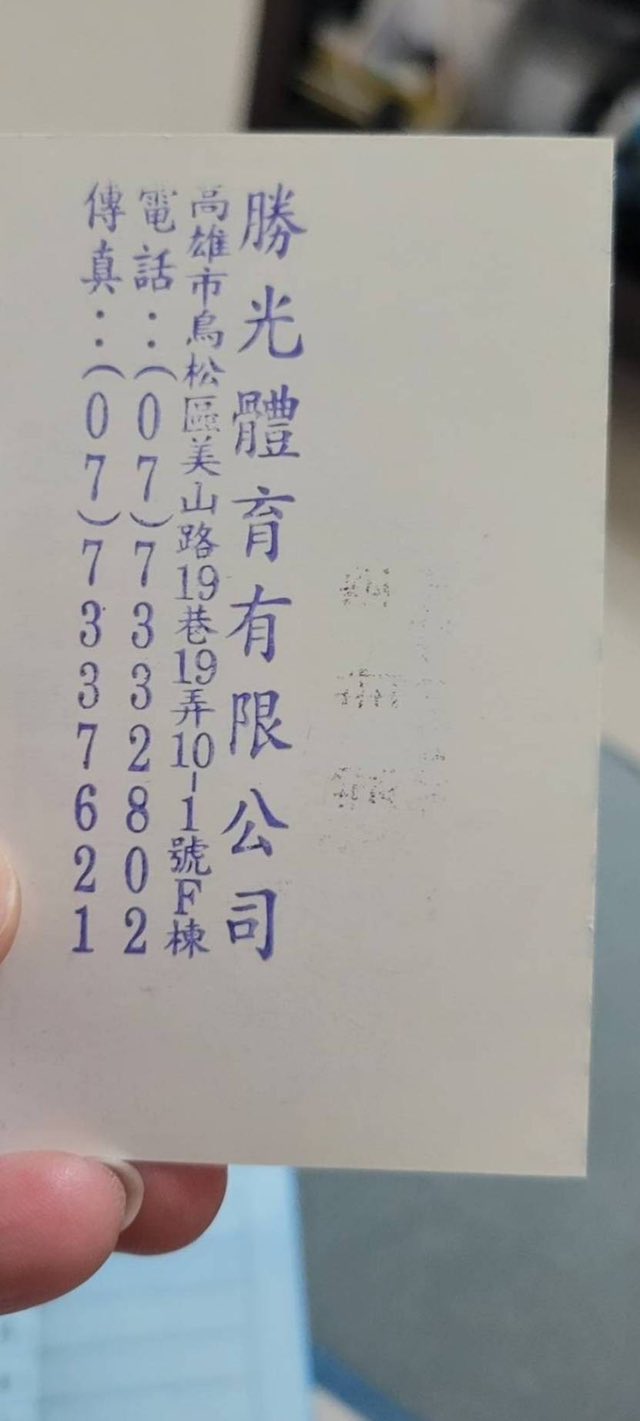 勝光體育有限公司
高雄市鳥松區美山路19巷19弄10-1號F棟
電話：(07)7332802
傳真：(07)7337621